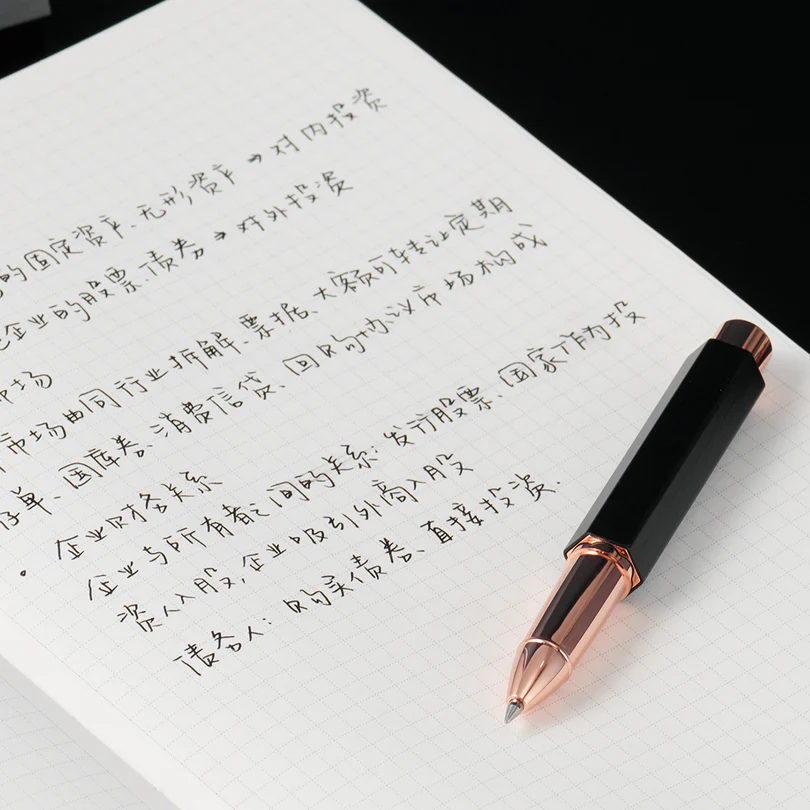 的固定资产、无形资产→对内投资
企业的股票、债券→对外投资
市场
市场由同行业拆解、票据、大额可转让定期
存单、国库券、消费信贷、回购协议市场构成
· 企业财务关系
企业与所有者之间的关系：发行股票、国家作为投
资人入股，企业吸引外商入股
债务人：购买债券、直接投资.